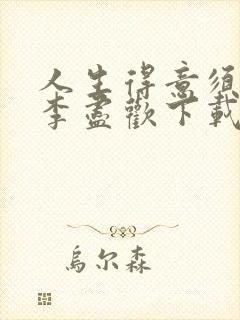 人生得意须
李盡歡下載
烏尔森